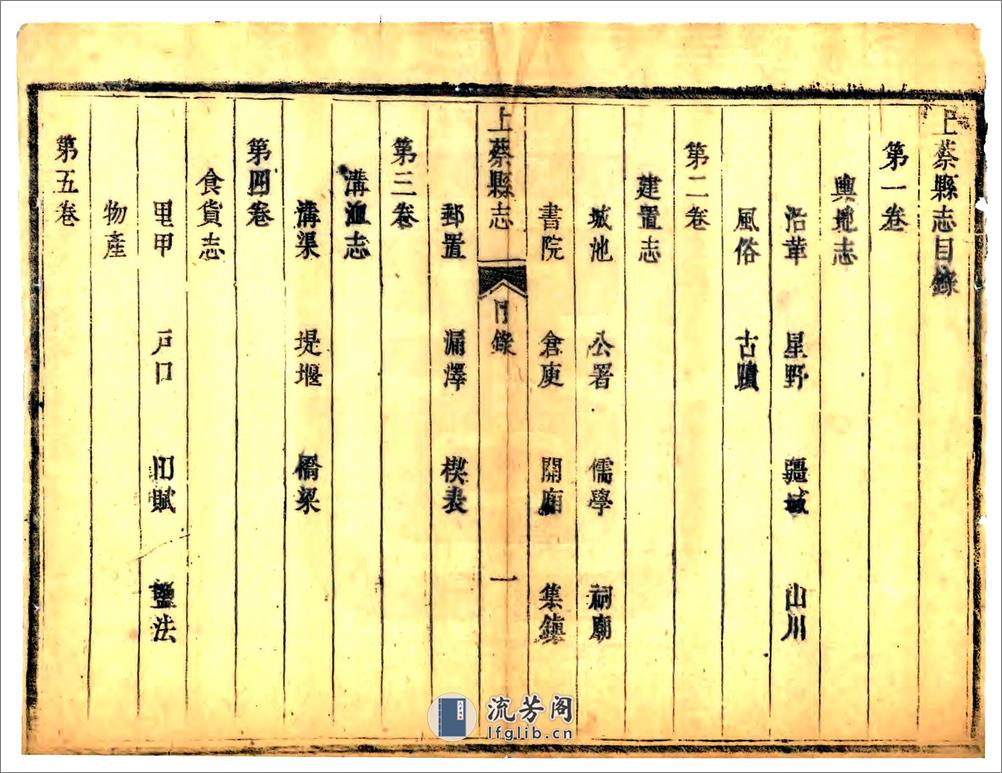 上蔡縣志目錄
第一卷
輿地志
沿革 星野 疆域 山川
風俗 古蹟
第二卷
建置志
城池 公署 儒學 祠廟
書院 倉庾 關廂 集鎮
上蔡縣志 目錄 一
郵置 漏澤 楔表
第三卷
溝洫志
溝渠 堤堰 橋梁
第四卷
食貨志
里甲 戶口 田賦 鹽法
物產
第五卷
流芳阁
lfglib.cn